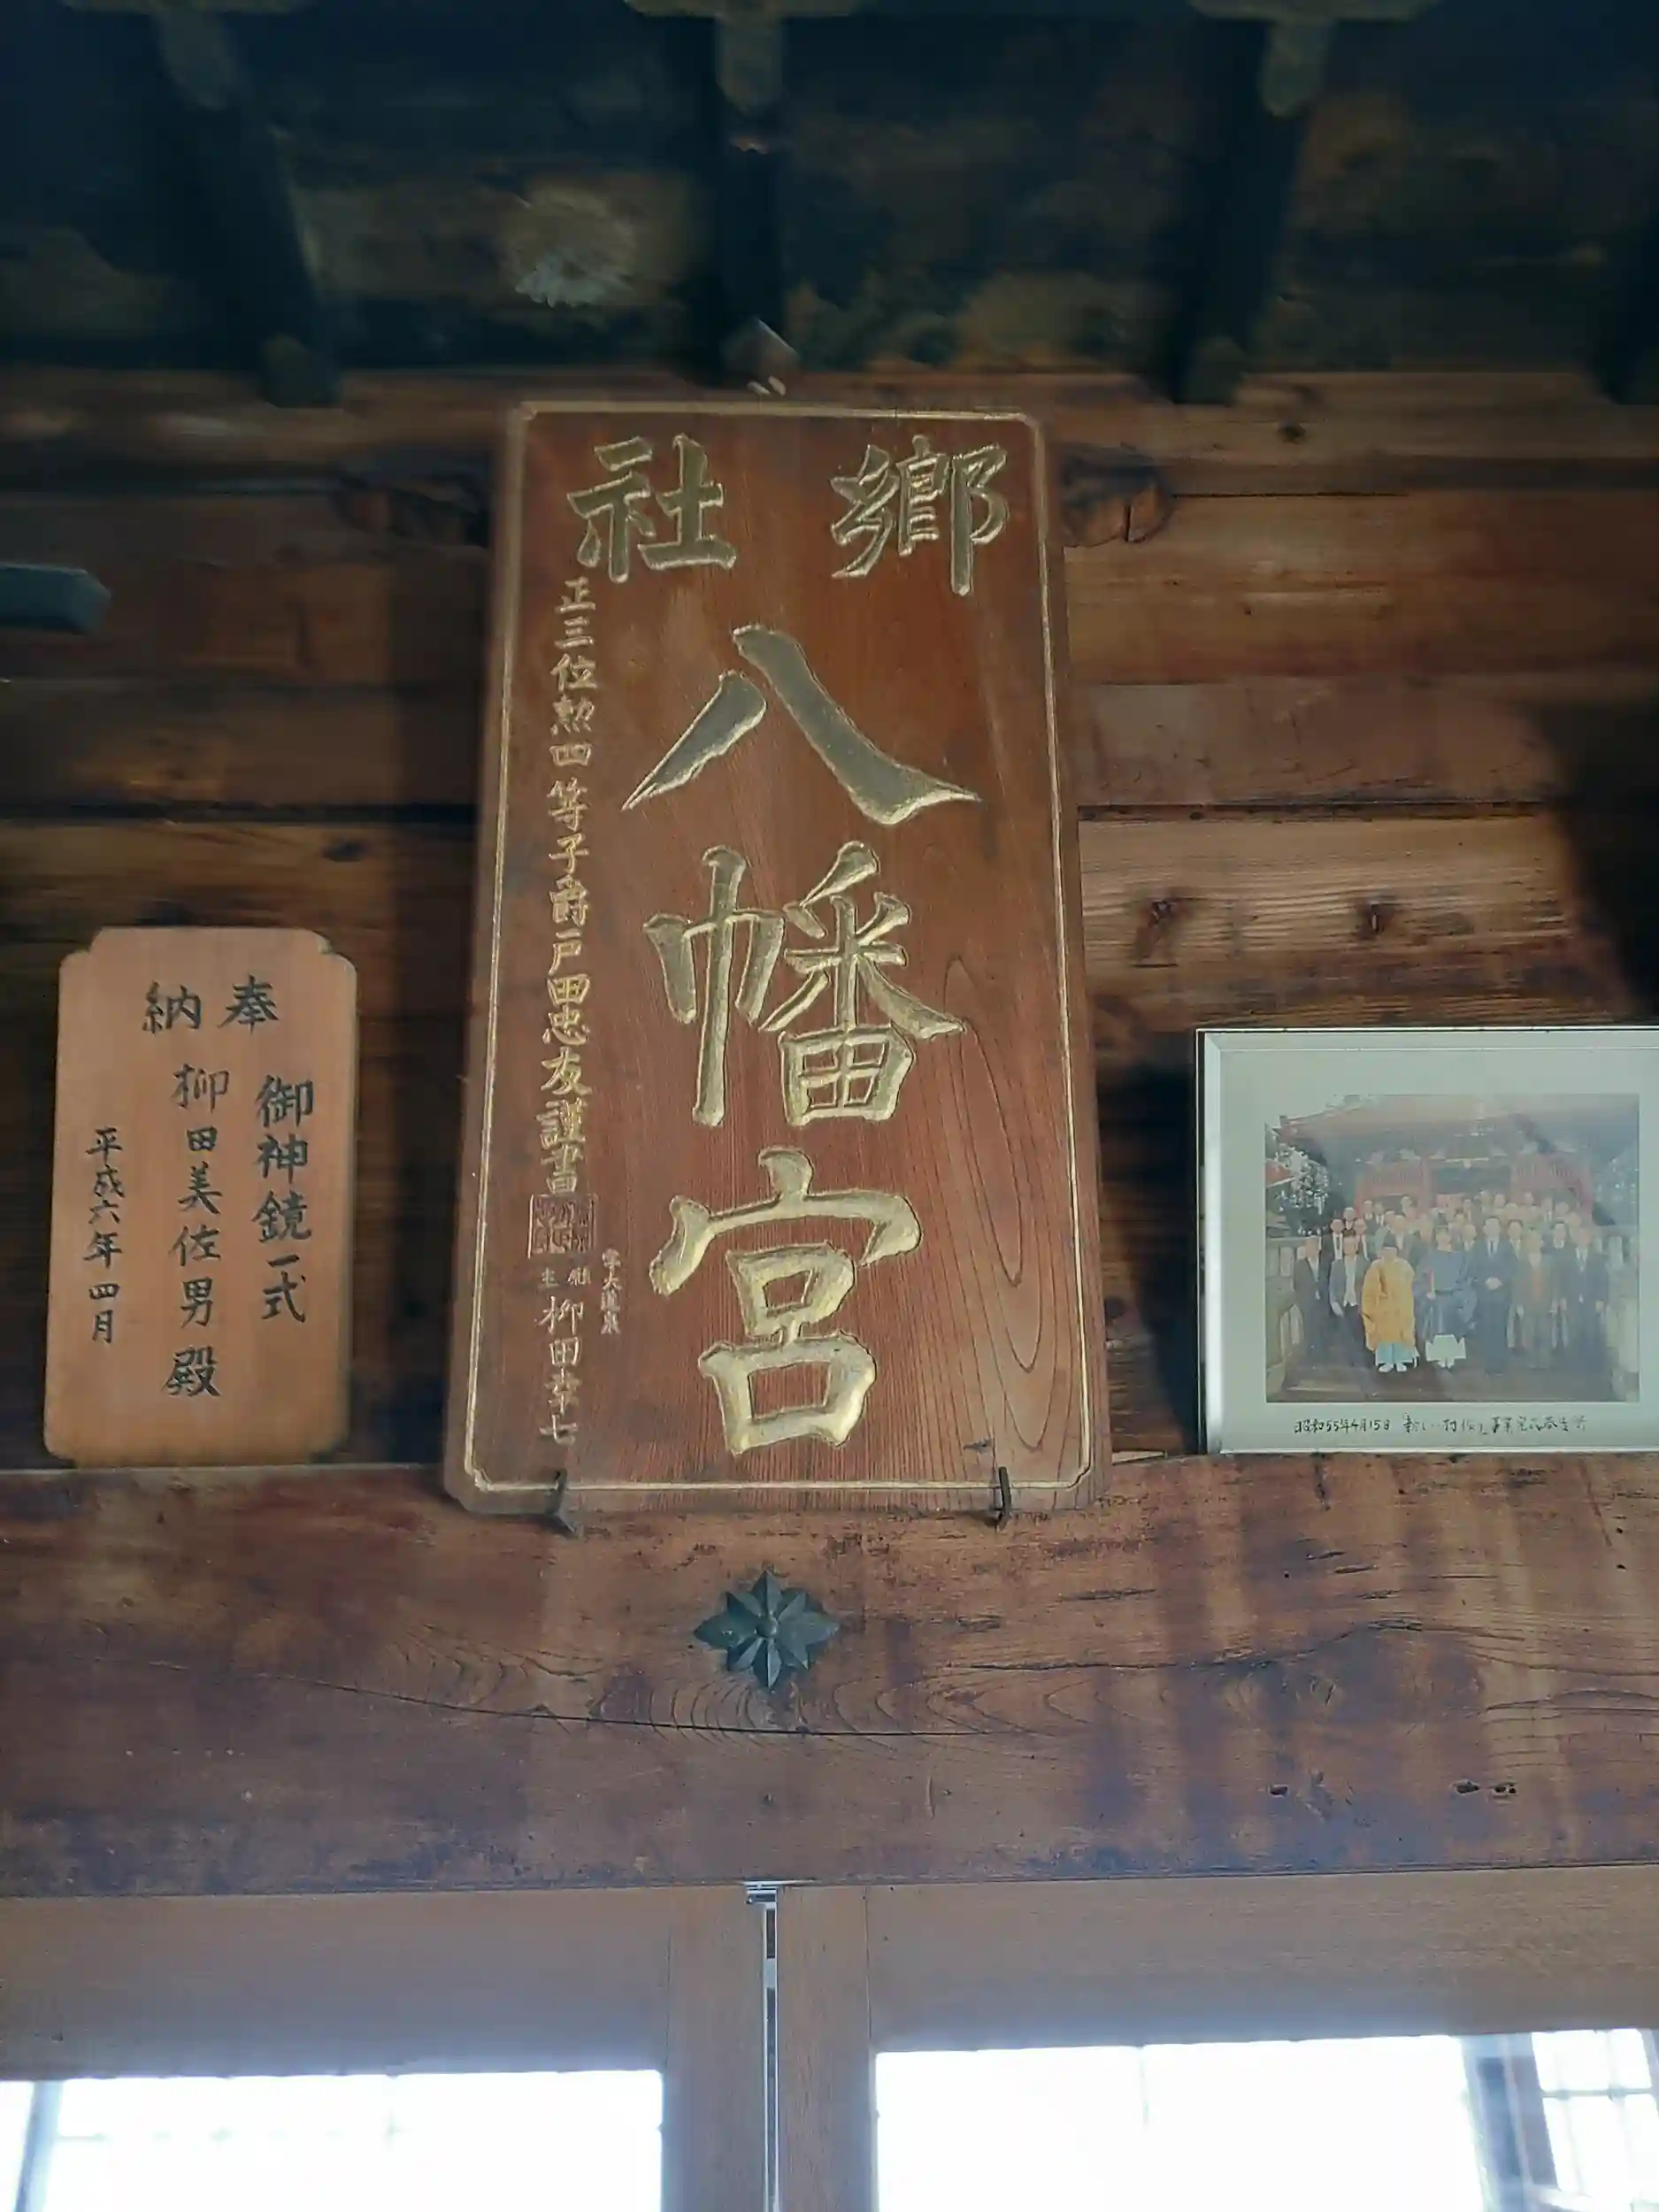 郷社
八幡宮
正三位勲四等子爵戸田忠友謹書
字大道泉
願主
柳田幸七
奉納
御神鏡一式
柳田美佐男殿
平成六年四月
昭和55年4月15日